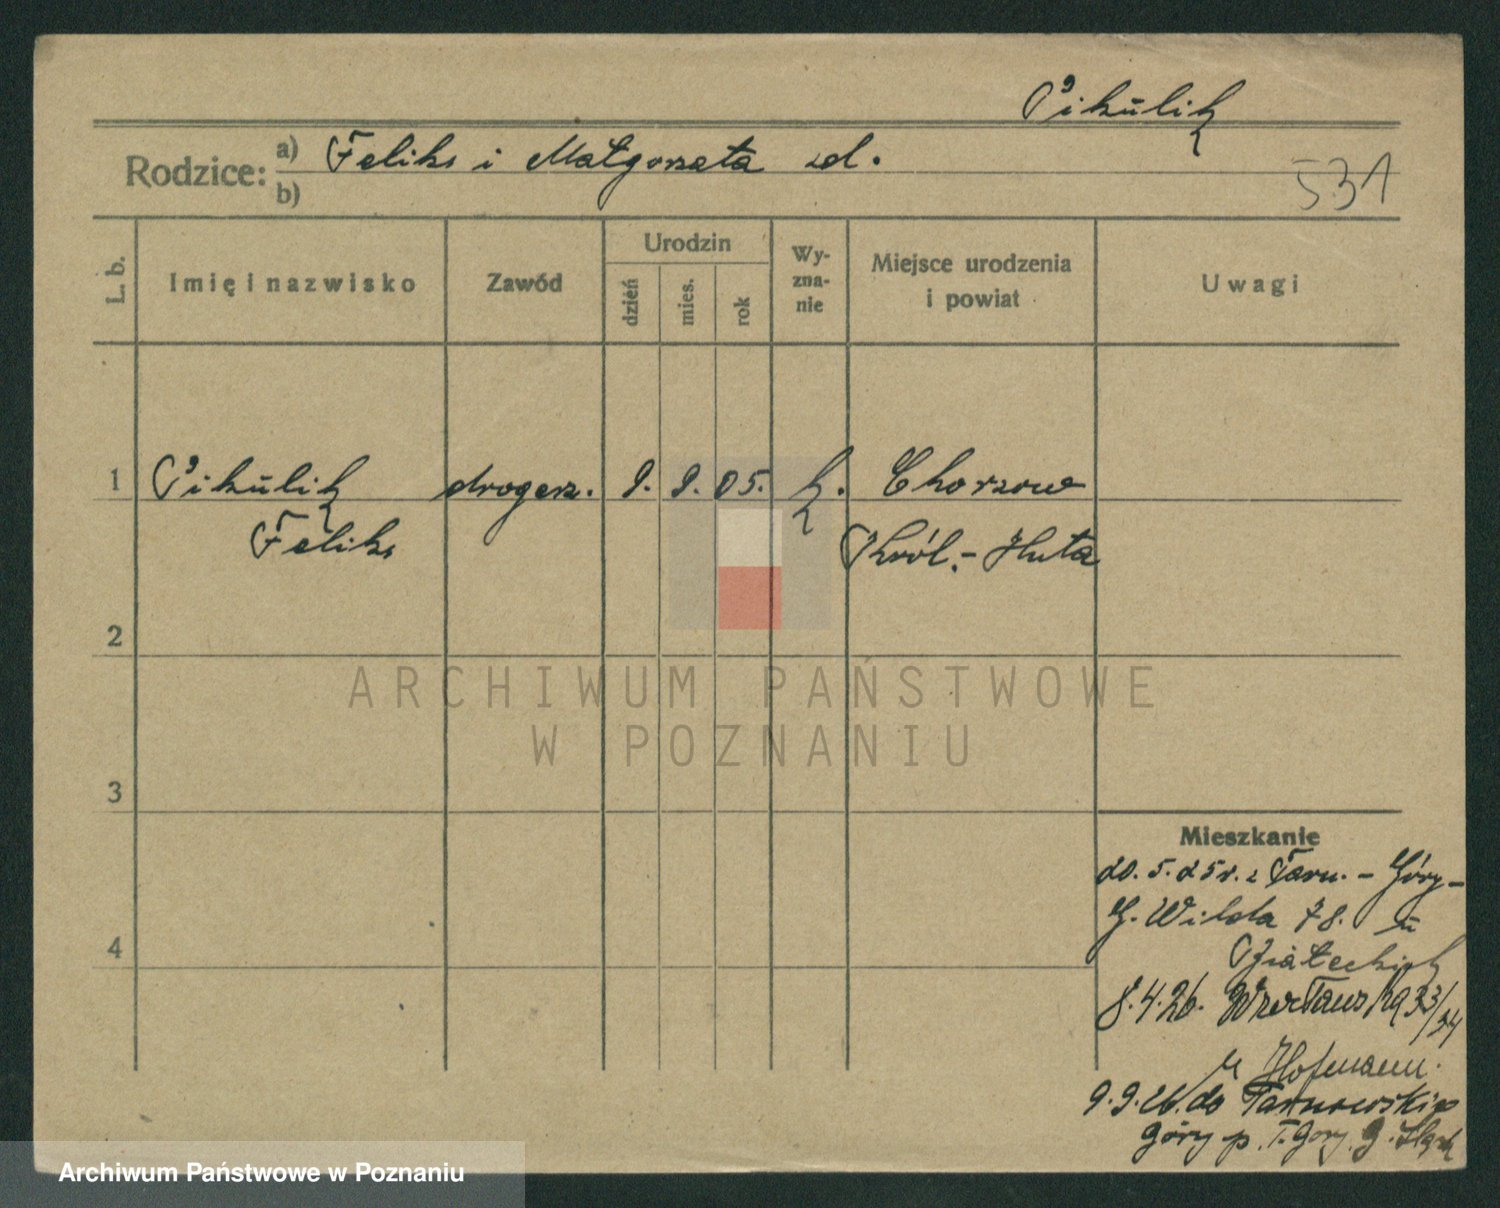 Pikulik
Rodzice: a) Feliks i Małgorzata zd.
b)
531
L. b.
Imię i nazwisko
Zawód
Urodzin
dzień
mies.
rok
Wy-
zna-
nie
Miejsce urodzenia
i powiat
Uwagi
1 Pikulik drogerz. 9. 9. 05. k. Chorzow
Feliks Król.-Huta
2
3
4
Mieszkanie
20. 5. 25 r. z Tarn. - Góry -
G. Wilda 78. u
8.4.26. 33/34
u Hofmann.
9.9.26. do Tarnowskie
Góry p. T. Góry. G. Śląsk
ARCHIWUM PAŃSTWOWE
W POZNANIU
Archiwum Państwowe w Poznaniu